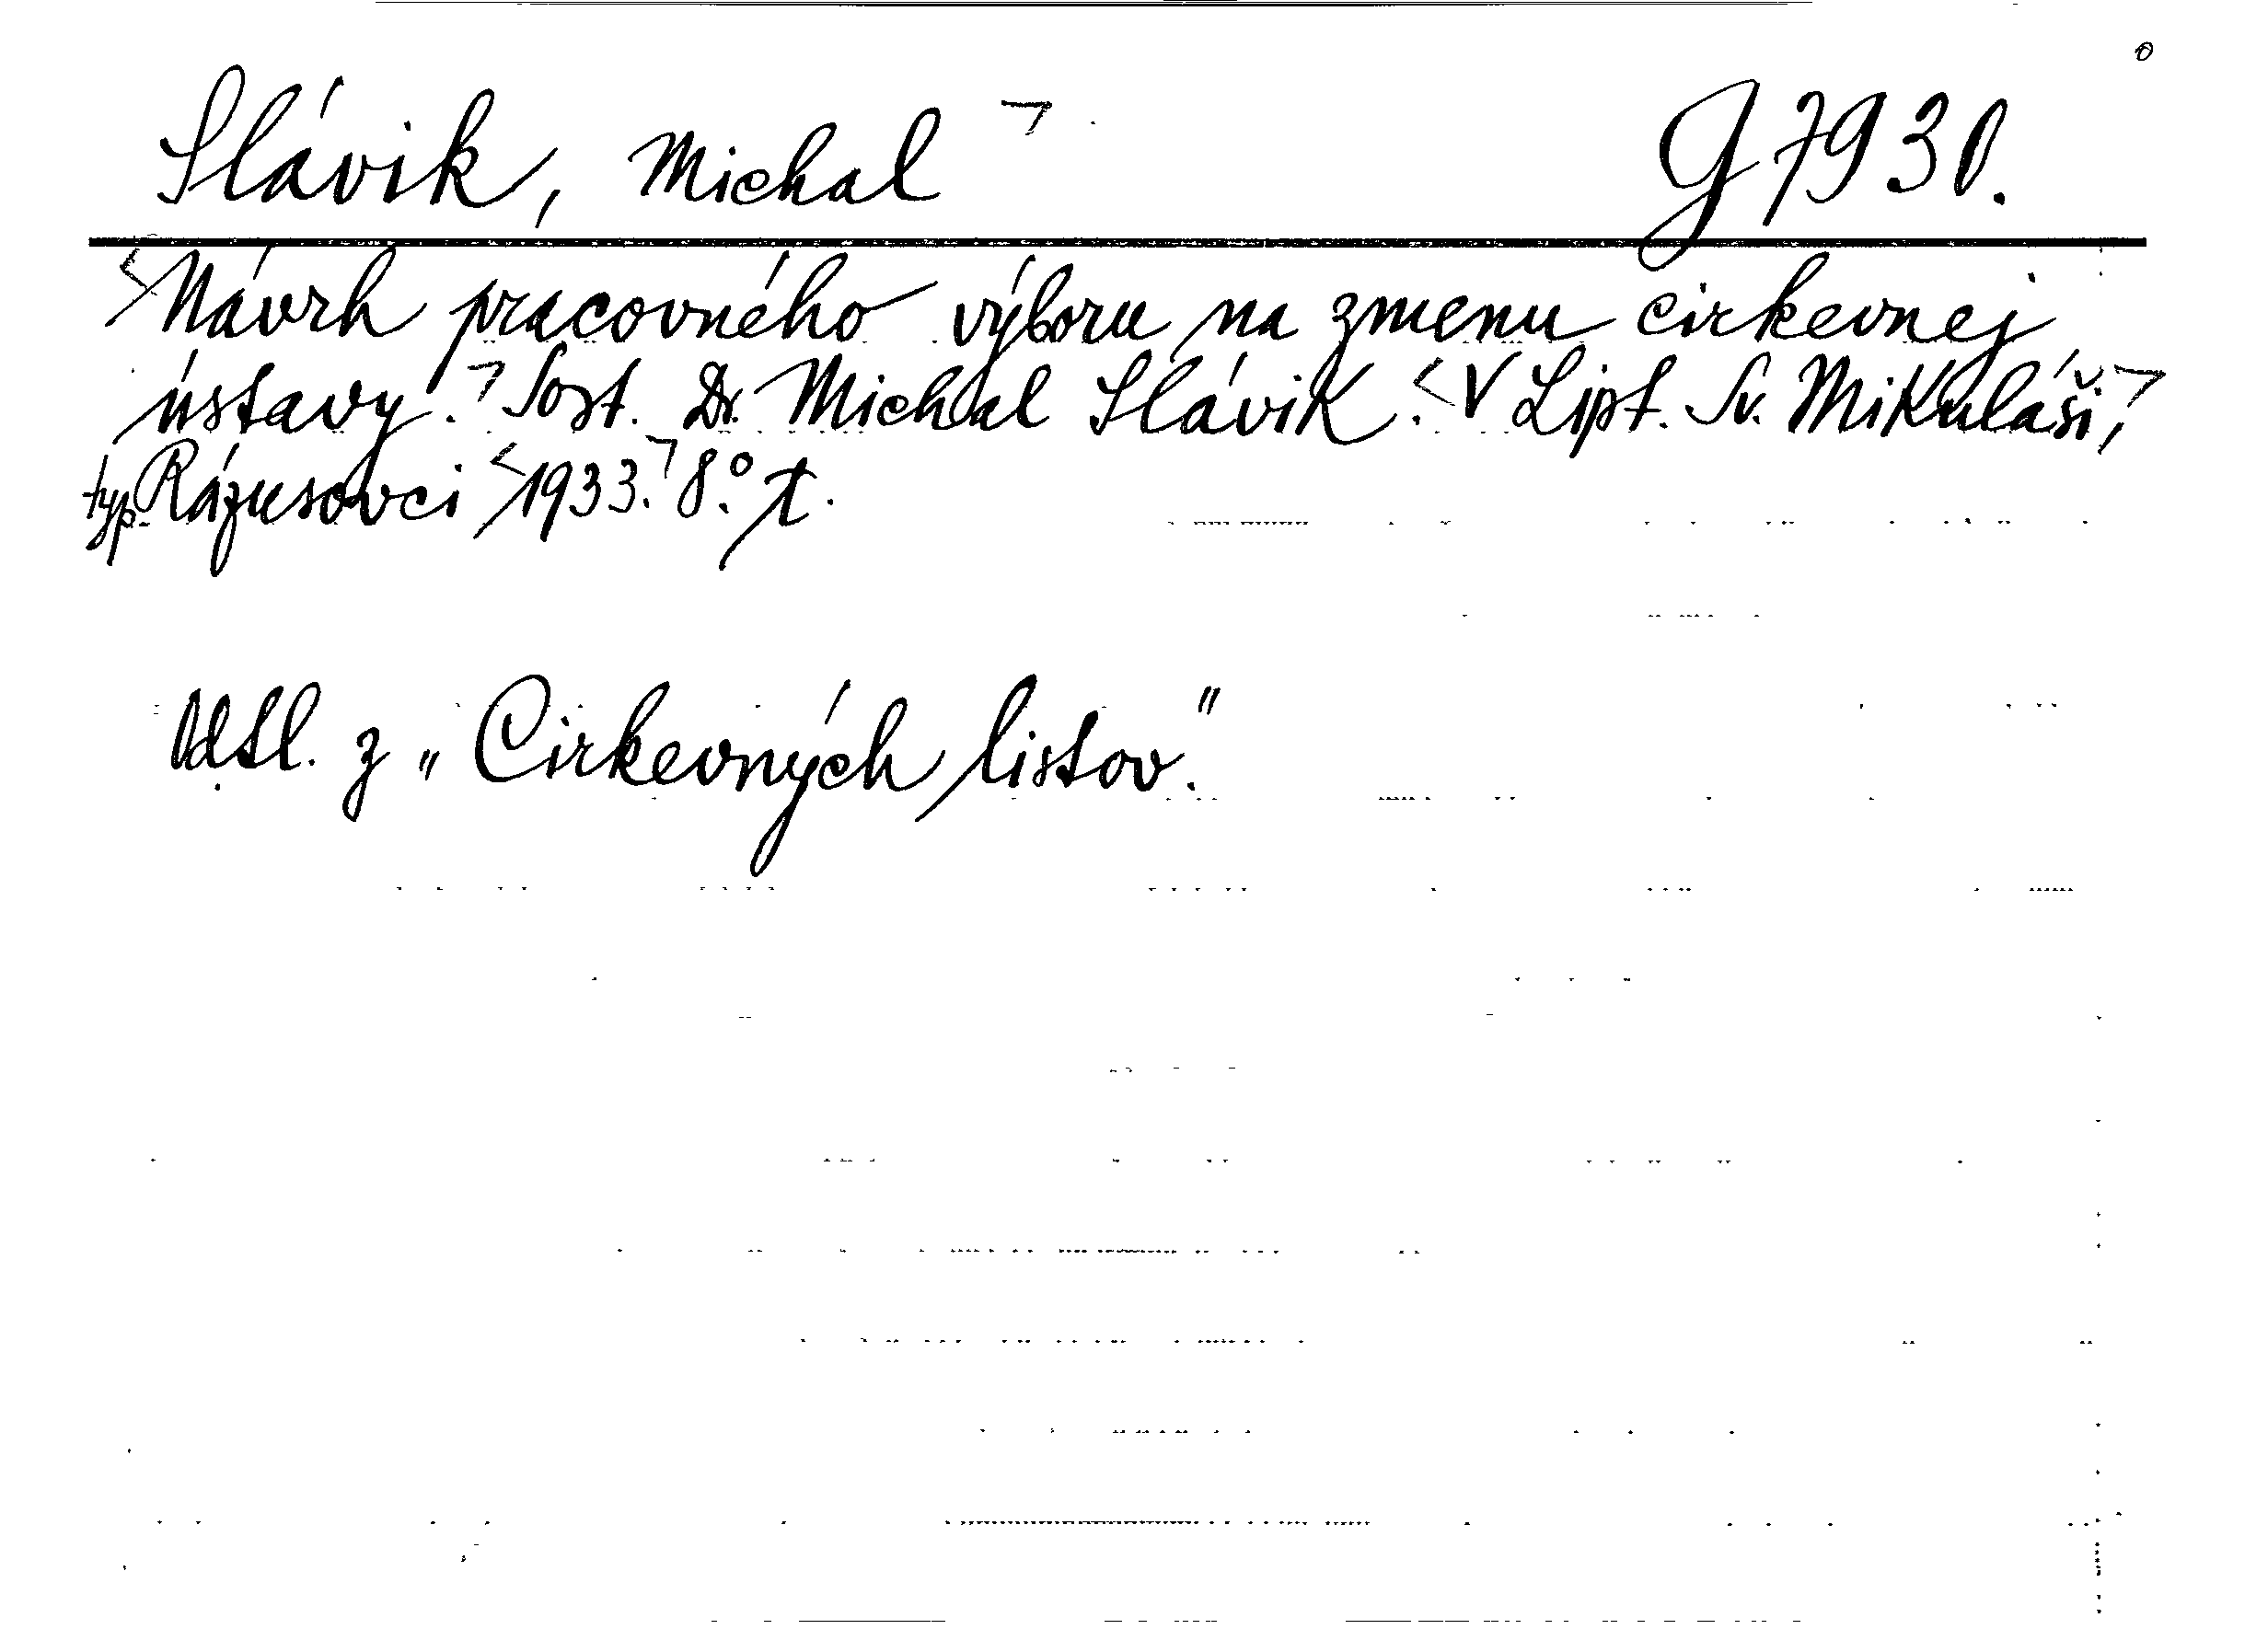 Slávik, Michal G 7930.
Návrh pracovného výboru na zmenu cirkevnej
ústavy. Sost. Dr. Michal Slávik. V Lipt. Sv. Mikuláši,
typ. Rázusovci 1933. 8.°
Odtl. z „Cirkevných listov."